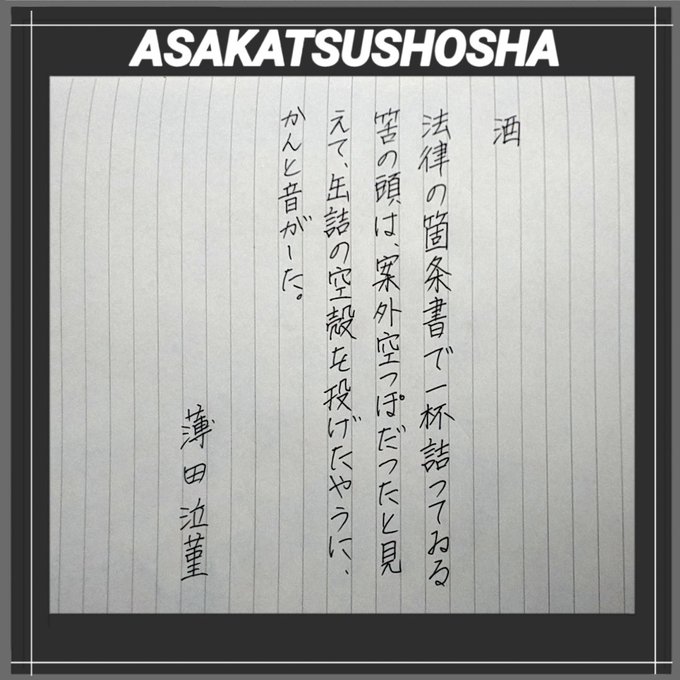 ASAKATSUSHOSHA
酒
法律の箇条書で一杯詰つてゐる
筈の頭は、案外空つぽだつたと見
えて、缶詰の空殻を投げたやうに、
かんと音がした。
薄田泣菫